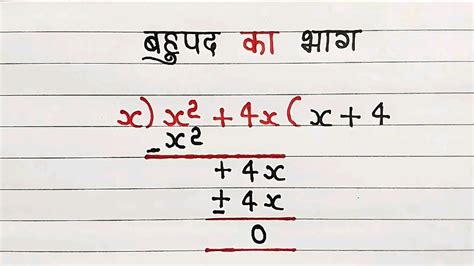 बहुपद का भाग
x) x² + 4x ( x + 4
- x²
+ 4x
± 4x
0